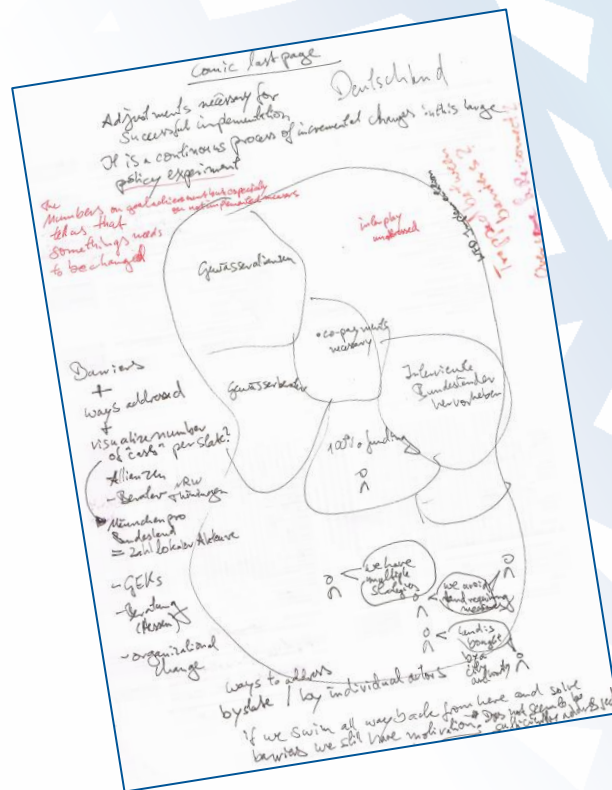 Comic last page
Deutschland
Adjustments necessary for
successful implementation
It is a continous process of incremental changes in this large
policy experiment
the
Numbers on goal achievement but especially
on not implemented measures
tell us that
somethings needs
to be changed
interplay
Gewässerallianzen
• co-payments
necessary
Gewässerberater
Interviewte
Bundesländer
hervorheben
100% funding
Barriers
+
ways addressed
+
visualize number
of "casts" per state?
Allianzen
- Berater NRW
Thüringen
Männchen pro
Bundesland
= Zahl lokaler Akteure
- GEKs
- Beratung
(Hessen)
- organizational
change
we have
multiple
strategies
we avoid
land requiring
measures
land is
bought
by a
city
authority
ways to address
by state / by individual actors
if we swim all way back from here and solve
barriers we still have motivation. Does not seem to be